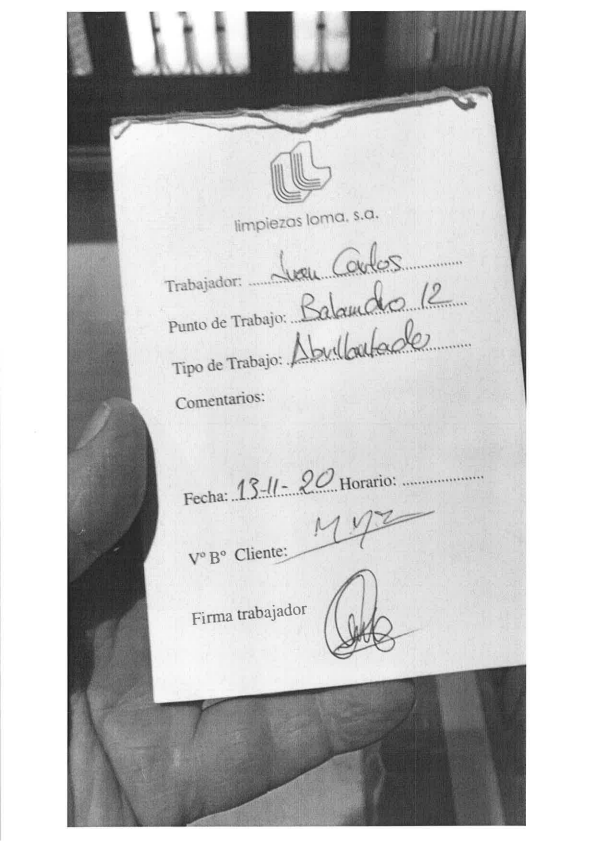 limpiezas loma, s.a.
Trabajador: Juan Carlos
Punto de Trabajo: Balandro 12
Tipo de Trabajo: Abrillantado
Comentarios:
Fecha: 13-11-20 Horario:
Vº Bº Cliente:
Firma trabajador